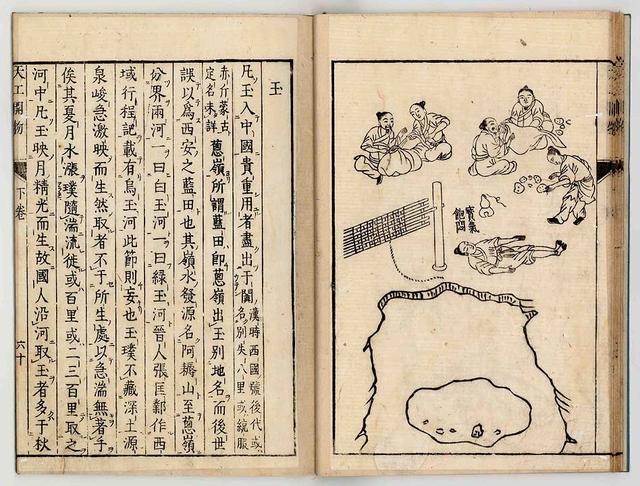 寶氣
飽悶
玉
凡玉入中國貴重用者盡出于闐漢時西國號後代或名別失八里或統服
赤斤蒙古定名未詳葱嶺所謂藍田即葱嶺出玉別地名而後世
誤以爲西安之藍田也其嶺水發源名阿耨山至葱嶺
分界兩河一曰白玉河一曰綠玉河晉人張匡鄴作西
域行程記載有烏玉河此節則妄也玉璞不藏深土源
泉峻急激映而生然取者不于所生處以急湍無著手
俟其夏月水漲璞隨湍流徙或百里或二三百里取之
河中凡玉映月精光而生故國人沿河取玉者多于秋
天工開物 下卷 六十